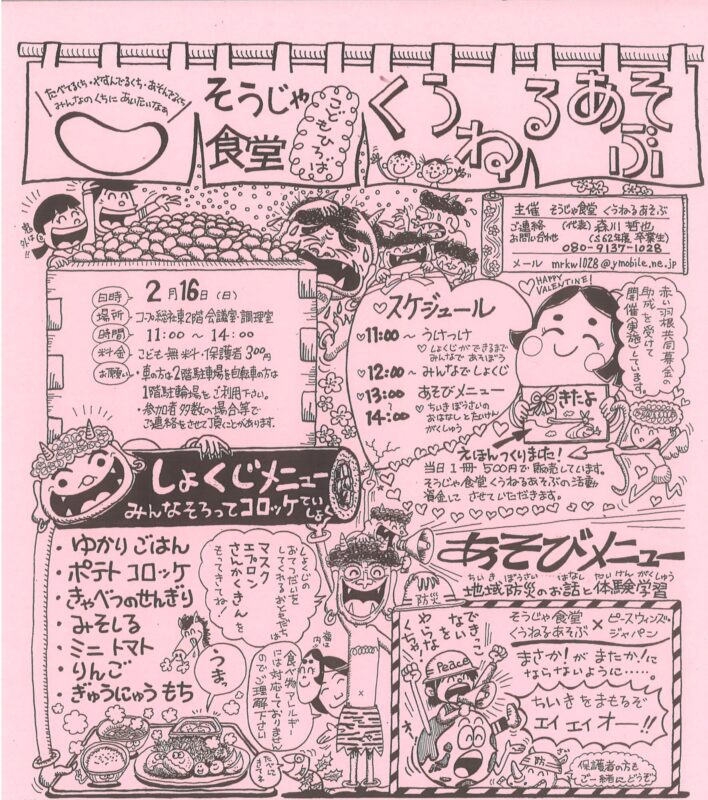 たべてるくち・やすんでるくち・あそんでるくち
みんなのくちに あいたいなぁ
そうじゃ
食堂
こどもひろば
くうねるあそぶ
主催 そうじゃ食堂 くうねるあそぶ
ご連絡
お問い合わせ
(代表) 森川 哲也
(S62年度 卒業生)
080-9137-1028
メール mrkw1028@ymobile.ne.jp
鬼は
外!!
日時 2月16日(日)
場所 コープ総社東2階 会議室・調理室
時間 11:00 ~ 14:00
料金 こども 無料・保護者 300円
お願い ・車の方は2階駐車場を自転車の方は
1階駐輪場をご利用下さい。
・参加者多数の場合等で
ご連絡をさせて頂くことがあります。
♡スケジュール
♡11:00~ うけつけ
しょくじができるまで
みんなであそぼう
♡12:00~ みんなでしょくじ
♡13:00
~
14:00
あそびメニュー
ちいきぼうさいの
おはなしとたいけん
がくしゅう
HAPPY
VALENTINE!
赤い羽根共同募金の
助成を受けて
開催(実施)しています。
きたよ
えほんつくりました!
当日1冊500円で販売しています。
そうじゃ食堂 くうねるあそぶの活動
資金に させていただきます。
しょくじメニュー
みんなそろってコロッケていしょく
・ゆかりごはん
・ポテトコロッケ
・きゃべつのせんぎり
・みそしる
・ミニトマト
・りんご
・ぎゅうにゅうもち
しょくじの
おてつだいを
してくれるおともだちは
マスク
エプロン
さんかくきんを
もってきてね!
うまっ
福は
内
食べ物アレルギー
には対応しておりません
のでご理解下さい
たべに
きてネ
あそびメニュー
防災
ちいき ぼうさい はなし たいけんがくしゅう
地域防災のお話と体験学習
そうじゃ食堂
くうねるあそぶ
×
ピースウィンズ・
ジャパン
Peace
まさか!が またか!に
ならないように……。
ちいきをまもるぞ
エイエイオー!!
保護者の方も
ご一緒にどうぞ